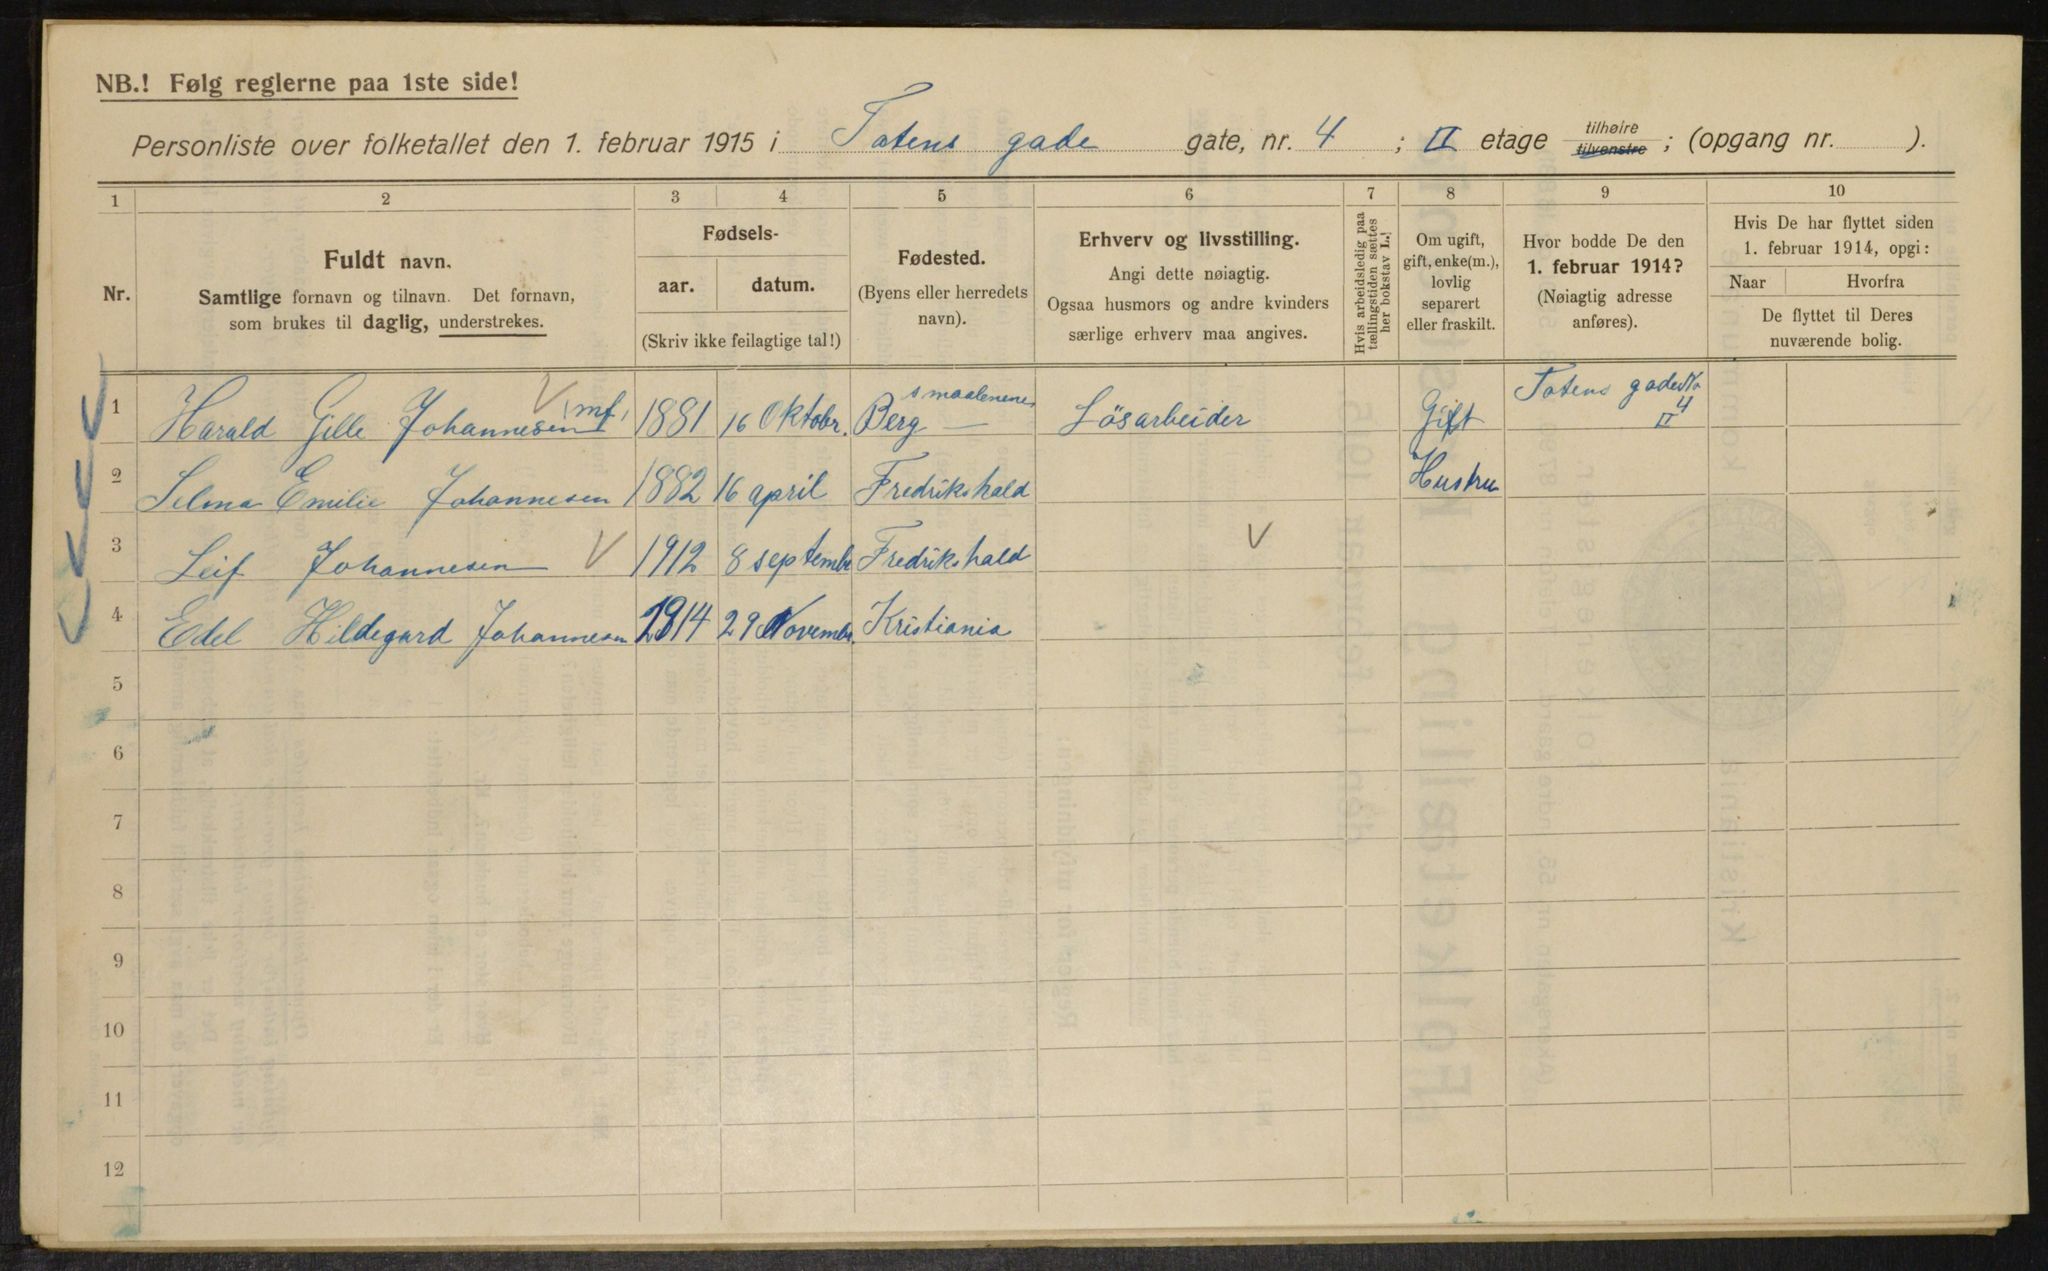 NB.! Følg reglerne paa 1ste side!
Personliste over folketallet den 1. februar 1915 i Totens gade gate, nr. 4 ; II etage tilhøire tilvenstre ; (opgang nr. ).
1 2 3 4 5 6 7 8 9 10
Nr.
Fuldt navn.
Samtlige fornavn og tilnavn. Det fornavn,
som brukes til daglig, understrekes.
Fødsels-
aar. datum.
(Skriv ikke feilagtige tal!)
Fødested.
(Byens eller herredets
navn).
Erhverv og livsstilling.
Angi dette nøiagtig.
Ogsaa husmors og andre kvinders
særlige erhverv maa angives.
Hvis arbeidsledig paa
tællingstiden sættes
her bokstav L.!
Om ugift,
gift, enke(m.),
lovlig
separert
eller fraskilt.
Hvor bodde De den
1. februar 1914?
(Nøiagtig adresse
anføres).
Hvis De har flyttet siden
1. februar 1914, opgi:
Naar Hvorfra
De flyttet til Deres
nuværende bolig.
1 Harald Gille Johannesen mf. 1881 16 Oktobr. Berg smaalenenes Lösarbeider Gift Totens gade No 4 II
2 Selma Emilie Johannesen 1882 16 april Fredrikshald Hustru
3 Leif Johannesen 1912 8 septembr Fredrikshald
4 Edel Hildegard Johannesen 1914 29 Novembr. Kristiania
5
6
7
8
9
10
11
12